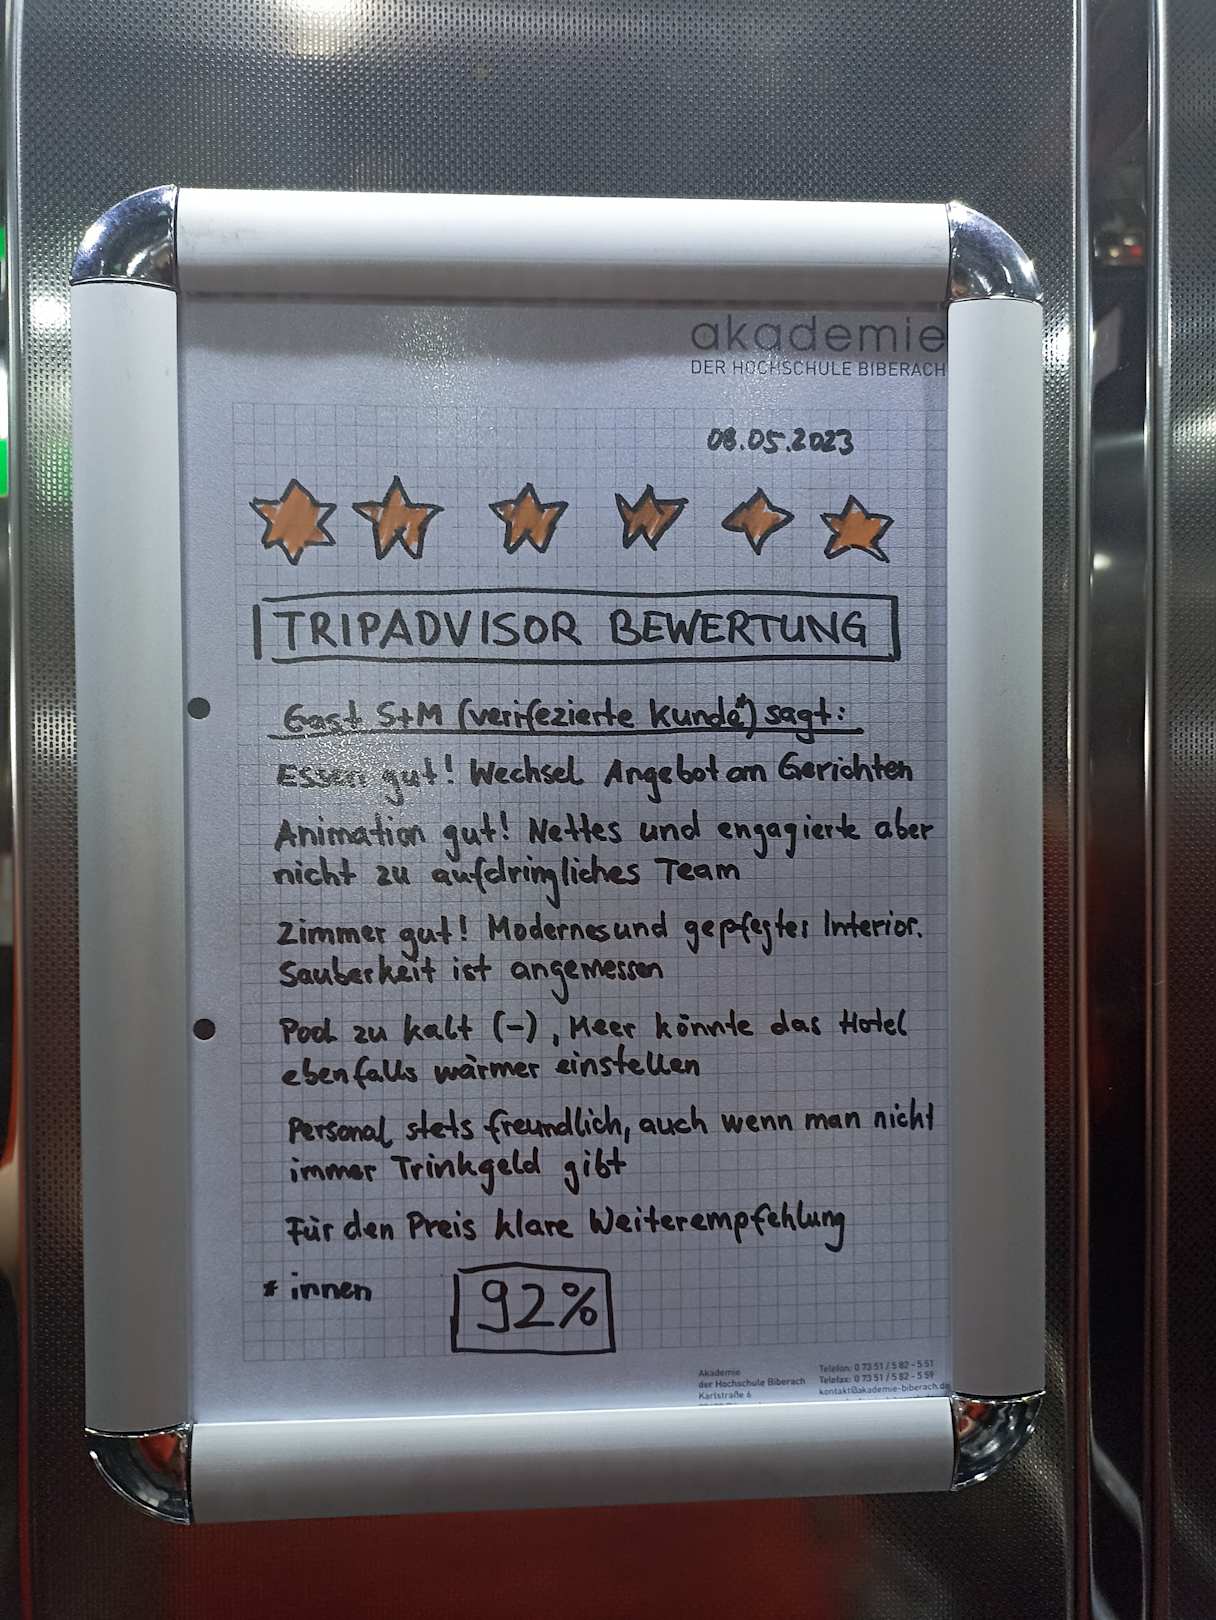 akademie
DER HOCHSCHULE BIBERACH
08.05.2023
TRIPADVISOR BEWERTUNG
Gast S+M (verifezierte Kunde*) sagt:
Essen gut! Wechsel Angebot an Gerichten
Animation gut! Nettes und engagierte aber
nicht zu aufdringliches Team
Zimmer gut! Modernes und gepfegtes Interior.
Sauberkeit ist angemessen
Pool zu kalt (-), Meer könnte das Hotel
ebenfalls wärmer einstellen
Personal stets freundlich, auch wenn man nicht
immer Trinkgeld gibt
Für den Preis klare Weiterempfehlung
* innen
92%
Akademie
der Hochschule Biberach
Karlstraße 6
Telefon: 0 73 51 / 5 82 - 5 51
Telefax: 0 73 51 / 5 82 - 5 59
kontakt@akademie-biberach.de